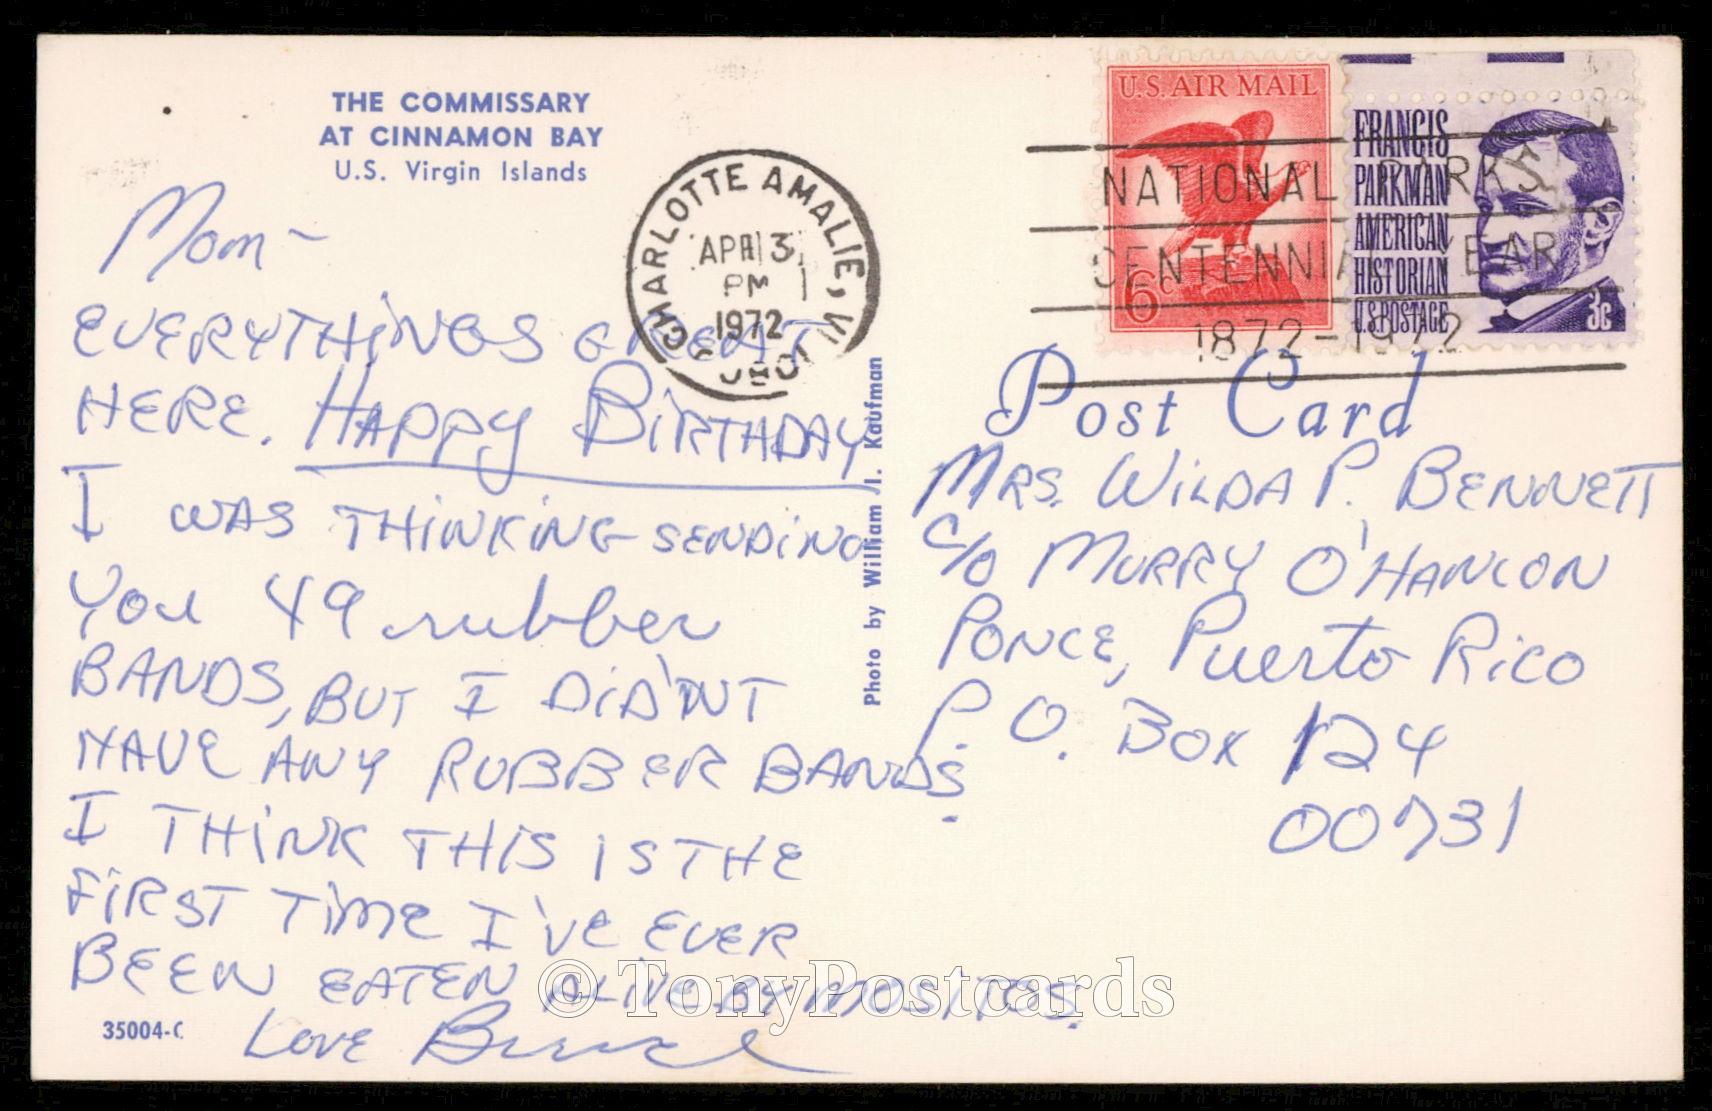 THE COMMISSARY
AT CINNAMON BAY
U.S. Virgin Islands
Mom -
EVERYTHINGS GREAT
HERE. HAPPY BIRTHDAY
I WAS THINKING SENDING
YOU 49 rubber
BANDS, BUT I DID'NT
HAVE ANY RUBBER BANDS.
I THINK THIS IS THE
FIRST TIME I'VE EVER
BEEN EATEN ALIVE BY MOSITOS.
LOVE Bruce
35004-C
CHARLOTTE AMALIE, VI
APR 3
PM
1972
Photo by William I. Kaufman
U.S. AIR MAIL
6c
FRANCIS
PARKMAN
AMERICAN
HISTORIAN
U.S. POSTAGE
3c
NATIONAL PARKS
CENTENNIAL YEAR
1872-1972
Post Card
MRS. WILDA P. BENNETT
C/O MURRY O'HANLON
PONCE, Puerto Rico
P.O. BOX 124
00731
© TonyPostcards